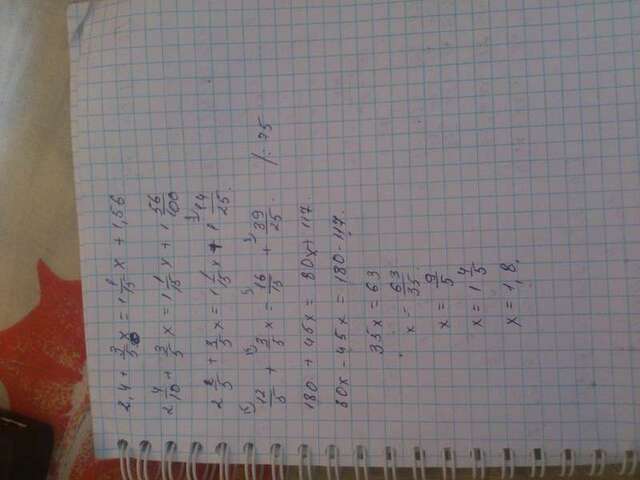 2,4 + 3/5 x = 1 1/15 x + 1,56
2 4/10 + 3/5 x = 1 1/15 x + 1 56/100
2 2/5 + 3/5 x = 1 1/15 x + 1 14/25
12/5 + 3/5 x = 16/15 x + 39/25 /·75
180 + 45x = 80x + 117
80x - 45x = 180 - 117
35x = 63
x = 63/35
x = 9/5
x = 1 4/5
x = 1,8.